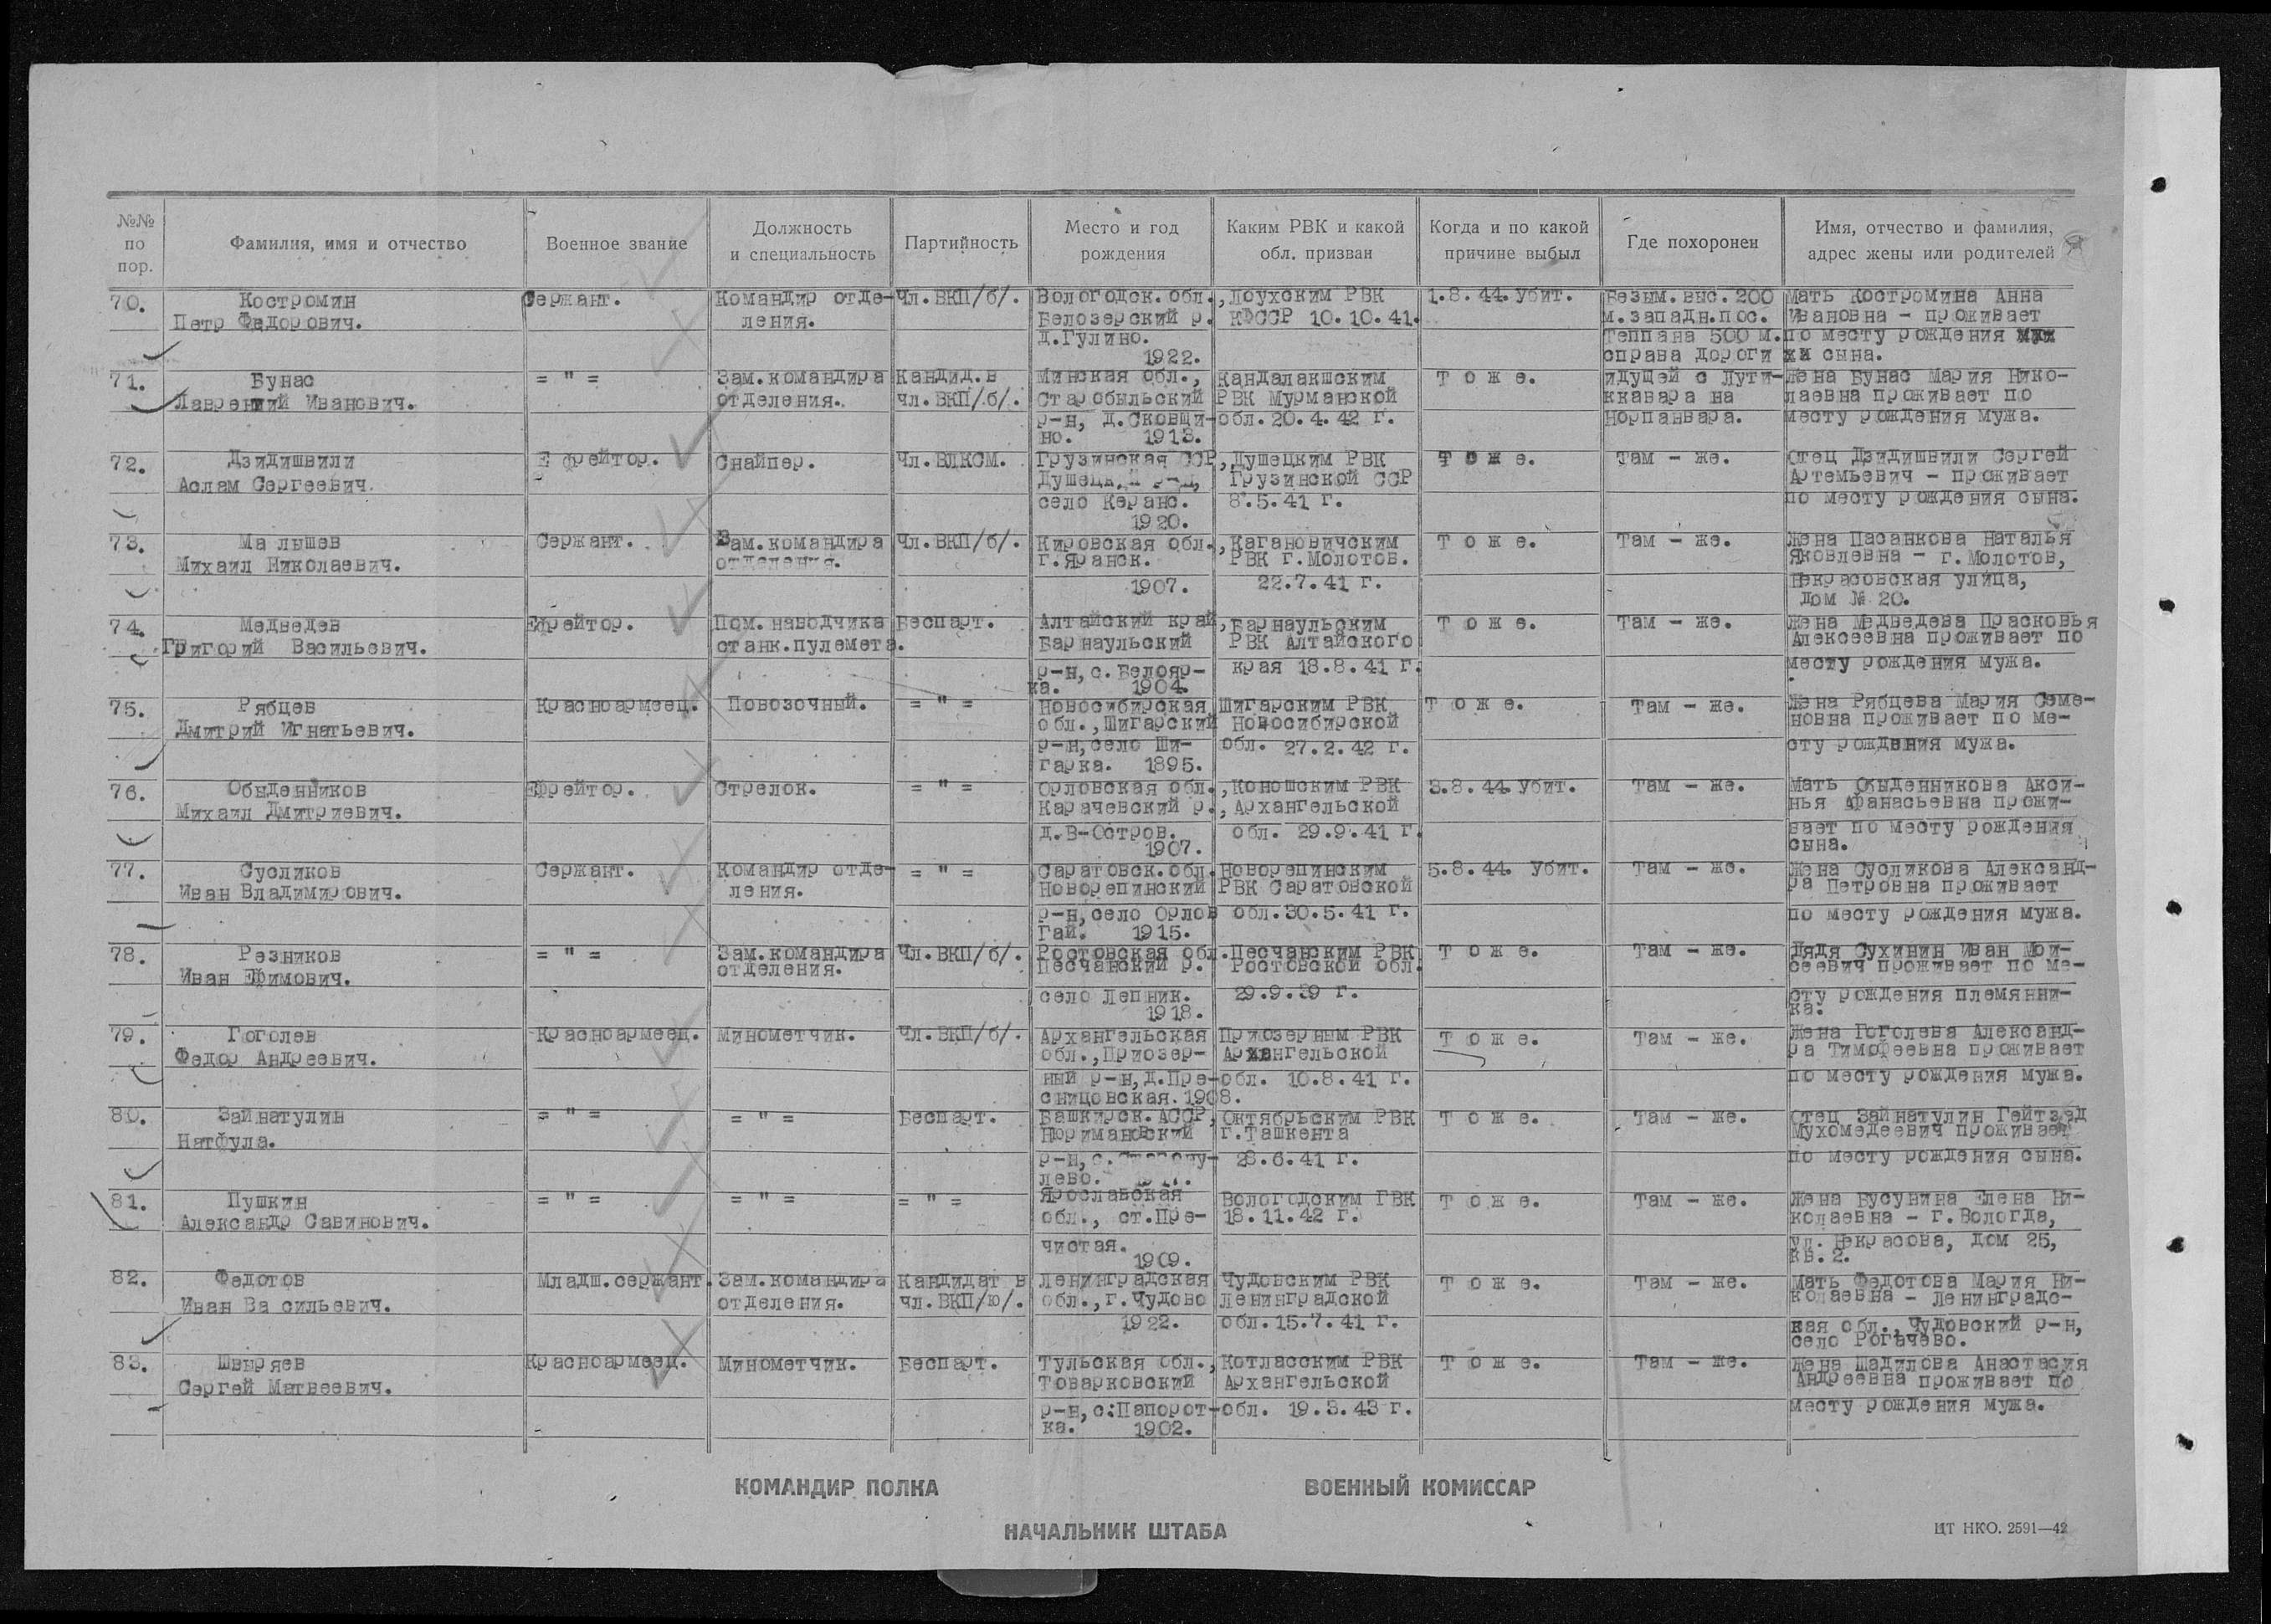 №№ по пор.
Фамилия, имя и отчество
Военное звание
Должность и специальность
Партийность
Место и год рождения
Каким РВК и какой обл. призван
Когда и по какой причине выбыл
Где похоронен
Имя, отчество и фамилия, адрес жены или родителей
70. Костромин Сержант. Командир отде- Чл.ВКП/б/. Вологодск.обл., Лоухским РВК 1.8.44.Убит. Безым.выс.200 Мать Костромина Анна
Петр Федорович. ления. Белозерский р. КФССР 10.10.41. м.западн.пос. Ивановна - проживает
д.Гулино. Теппана 500 м. по месту рождения
1922. справа дороги сына.
71. Бунас = " = Зам.командира Кандид.в Минская обл., Кандалакшским Т о ж е. идущей с Лути- Жена Бунас Мария Нико-
Лаврентий Иванович. отделения. чл.ВКП/б/. Старобыльский РВК Мурманской ккавара на лаевна проживает по
р-н, д.Сковши- обл.20.4.42 г. Норпанвара. месту рождения мужа.
но. 1913.
72. Дзидишвили Ефрейтор. Снайпер. Чл.ВЛКСМ. Грузинская ССР, Душецким РВК Т о ж е. Там - же. Отец Дзидишвили Сергей
Аслам Сергеевич. Душецк. р-н, Грузинской ССР Артемьевич - проживает
село Керанс. 8.5.41 г. по месту рождения сына.
1920.
73. Малышев Сержант. Зам.командира Чл.ВКП/б/. Кировская обл., Кагановичским Т о ж е. Там - же. Жена Пасанкова Наталья
Михаил Николаевич. отделения. г.Яранск. РВК г.Молотов. Яковлевна - г.Молотов,
1907. 22.7.41 г. Некрасовская улица,
дом № 20.
74. Медведев Ефрейтор. Пом.наводчика Беспарт. Алтайский край, Барнаульским Т о ж е. Там - же. Жена Медведева Прасковья
Григорий Васильевич. станк.пулемета. Барнаульский РВК Алтайского Алексеевна проживает по
р-н,с.Белояр- края 18.8.41 г. месту рождения мужа.
ка. 1904.
75. Рябцев Красноармеец. Повозочный. = " = Новосибирская Шигарским РВК Т о ж е. Там - же. Жена Рябцева Мария Семе-
Дмитрий Игнатьевич. обл.,Шигарский Новосибирской новна проживает по ме-
р-н,село Ши- обл. 27.2.42 г. сту рождения мужа.
гарка. 1895.
76. Обыденников Ефрейтор. Стрелок. = " = Орловская обл., Коношским РВК 3.8.44.Убит. Там - же. Мать Обыденникова Акси-
Михаил Дмитриевич. Карачевский р., Архангельской нья Афанасьевна прожи-
д.В-Остров. обл. 29.9.41 г. вает по месту рождения
1907. сына.
77. Сусликов Сержант. Командир отде- = " = Саратовск.обл. Новорепинским 5.8.44. Убит. Там - же. Жена Сусликова Александ-
Иван Владимирович. ления. Новорепинский РВК Саратовской ра Петровна проживает
р-н,село Орлов обл.30.5.41 г. по месту рождения мужа.
Гай. 1915.
78. Резников = " = Зам.командира Чл.ВКП/б/. Ростовская обл. Песчанским РВК Т о ж е. Там - же. Дядя Сухинин Иван Мои-
Иван Ефимович. отделения. Песчанский р. Ростовской обл. сеевич проживает по ме-
село Лепник. 29.9.39 г. сту рождения племянни-
1918. ка.
79. Гоголев Красноармеец. Минометчик. Чл.ВКП/б/. Архангельская Приозерным РВК Т о ж е. Там - же. Жена Гоголева Александ-
Федор Андреевич. обл.,Приозер- Архангельской ра Тимофеевна проживает
ный р-н,д.Пре- обл. 10.8.41 г. по месту рождения мужа.
сницовская.1908.
80. Зайнатулин = " = = " = Беспарт. Башкирск.АССР, Октябрьским РВК Т о ж е. Там - же. Отец Зайнатулин Гейтзад
Натфула. Нюримановский г.Ташкента Мухомедеевич проживает
р-н,с. 28.6.41 г. по месту рождения сына.
лево.
81. Пушкин = " = = " = = " = Ярославская Вологодским ГВК Т о ж е. Там - же. Жена Бусунина Елена Ни-
Александр Савинович. обл., ст.Пре- 18.11.42 г. колаевна - г.Вологда,
чистая. ул. Некрасова, дом 25,
1909. кв.2.
82. Федотов Младш.сержант. Зам.командира Кандидат в Ленинградская Чудовским РВК Т о ж е. Там - же. Мать Федотова Мария Ни-
Иван Васильевич. отделения. чл.ВКП/ю/. обл.,г.Чудово Ленинградской колаевна - Ленинградс-
1922. обл.15.7.41 г. кая обл.,Чудовский р-н,
село Рогачево.
83. Швыряев Красноармеец. Минометчик. Беспарт. Тульская обл., Котласским РВК Т о ж е. Там - же. Жена Шадилова Анастасия
Сергей Матвеевич. Товарковский Архангельской Андреевна проживает по
р-н,с.Папорот- обл. 19.3.43 г. месту рождения мужа.
ка. 1902.
КОМАНДИР ПОЛКА
ВОЕННЫЙ КОМИССАР
НАЧАЛЬНИК ШТАБА
ЦТ НКО. 2591—42